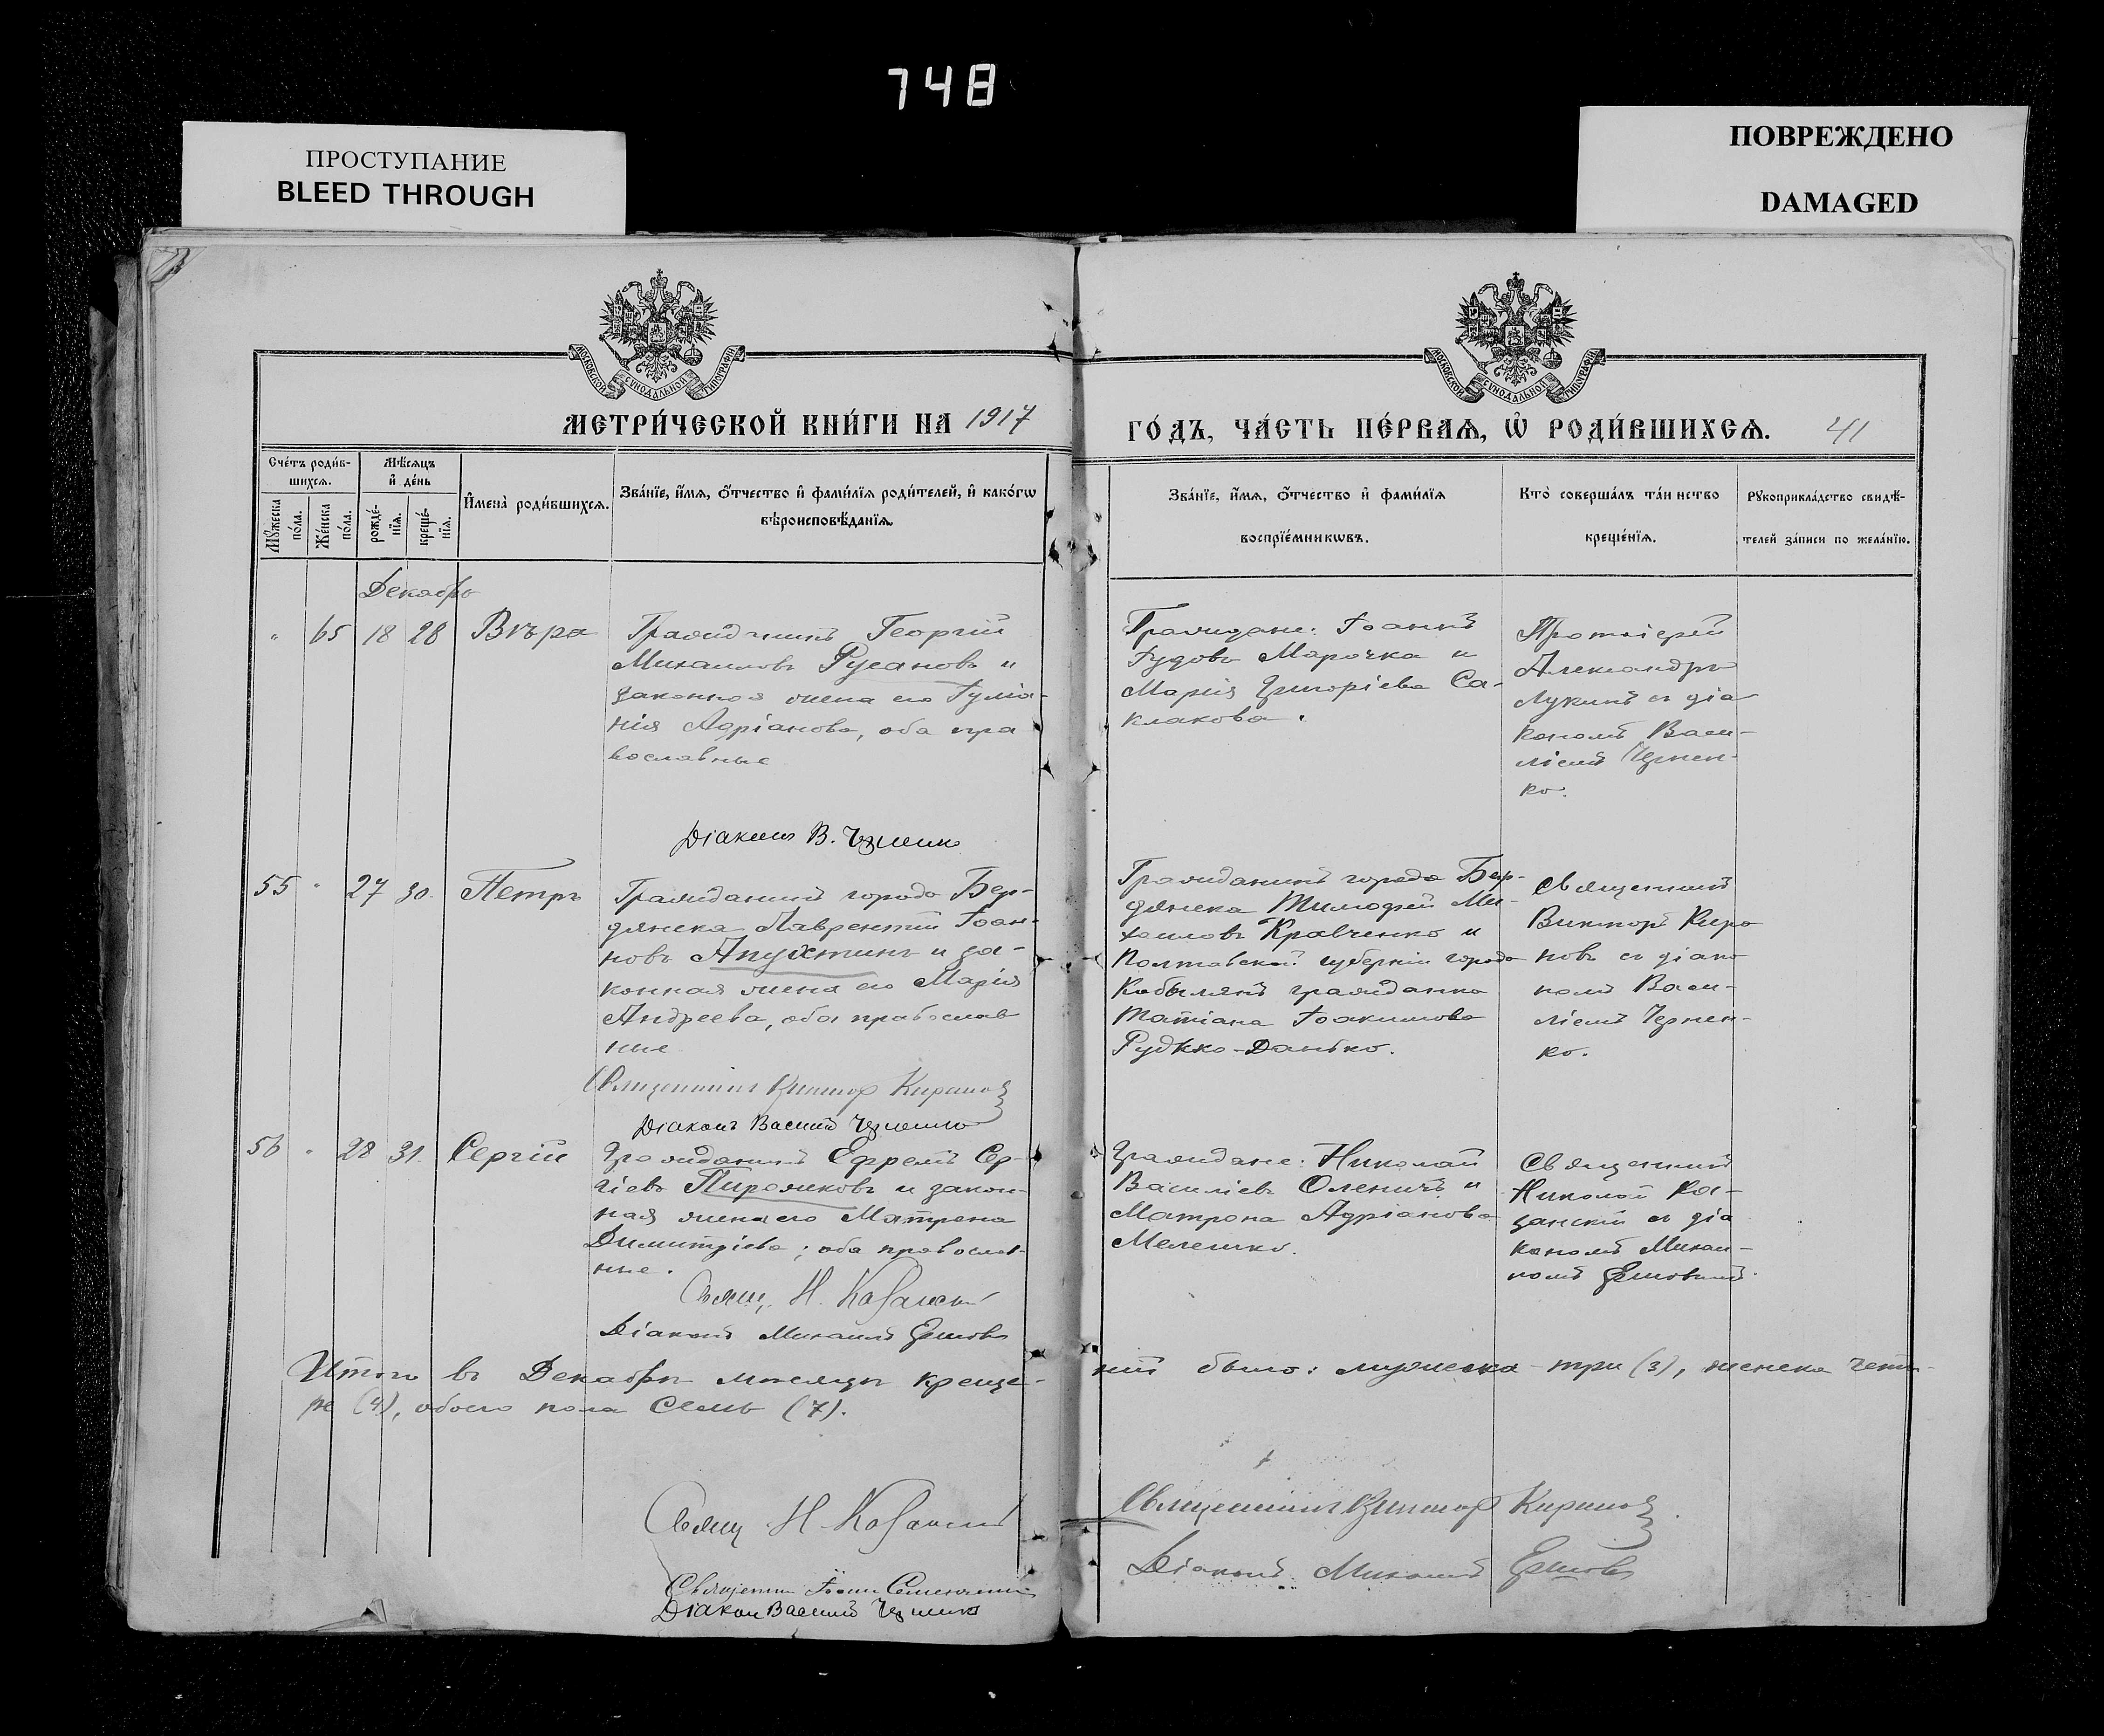 748
ПРОСТУПАНИЕ
BLEED THROUGH
ПОВРЕЖДЕНО
DAMAGED
МОСКОВСКОЙ СѴНОДАЛЬНОЙ ТИПОГРАФІИ
МОСКОВСКОЙ СѴНОДАЛЬНОЙ ТИПОГРАФІИ
МЕТРИ́ЧЕСКОЙ КНИ́ГИ НА 1917
ГО́ДЪ, ЧА́СТЬ ПЕ́РВАѦ, Ѡ҆ РОДИ́ВШИХСѦ. 41
Сче́тъ роди́в-
шихсѧ.
Мꙋ́жеска по́ла.
Же́нска по́ла.
Мѣ́сѧцъ
и҆ де́нь
рожде́-
нїѧ.
креще́-
нїѧ.
И҆мена̀ роди́вшихсѧ.
Зва́нїе, и҆́мѧ, ѻ҆́тчество и҆ фами́лїѧ роди́телей, и҆ како́гѡ
вѣроисповѣ́данїѧ.
Зва́нїе, и҆́мѧ, ѻ҆́тчество и҆ фами́лїѧ
воспрїе́мникѡвъ.
Кто̀ соверша́лъ та́инство
креще́нїѧ.
Рꙋкоприкла́дство свидѣ́-
телей за́писи по жела́нїю.
Декабрь
" 65 18 28 Вѣра
Гражданинъ Георгій
Михаиловъ Русановъ и
законная жена его Гуліа-
нія Адріанова, оба пра
вославные
Діаконъ В. Черненко
Граждане: Іоаннъ
Іудовъ Марочка и
Марія Григоріева Са-
клакова.
Протоіерей
Александръ
Лукинъ съ діа
кономъ Васи-
ліемъ Чернен-
ко.
55 " 27 30. Петръ
Гражданинъ города Бер-
дянска Лаврентій Іоан-
новъ Апухтинъ и за-
конная жена его Марія
Андреева, оба православ
ные
Священникъ Викторъ Кирановъ
Діаконъ Василій Черненко
Гражданинъ города Бер-
дянска Тимофей Ми-
хаиловъ Кравченко и
Полтавской губерніи города
Кобылякъ гражданка
Татіана Іоакимова
Рудько-Данько.
Священникъ
Викторъ Кира
новъ съ діако
номъ Васи-
ліемъ Чернен-
ко.
56 " 28 31. Сергій
Гражданинъ Ефремъ Сер-
гіевъ Пирожковъ и закон-
ная жена его Матрона
Димитріева; оба православ-
ные.
Свящ. Н. Казанскій
Діаконъ Михаилъ Ершовъ
Граждане: Николай
Василіевъ Оленичъ и
Матрона Адріанова
Мелешко.
Священникъ
Николай Ка-
занскій съ діа
кономъ Михаи-
ломъ Ершовымъ.
Итого въ Декабрѣ мѣсяцѣ креще-
ній было: мужеска - три (3), женска четы-
ре (4), обоего пола семь (7).
Свящ Н. Казанскій
Священникъ Викторъ Кирановъ
Діаконъ Михаилъ Ершовъ
Священникъ Іоаннъ
Діаконъ Василій Черненко